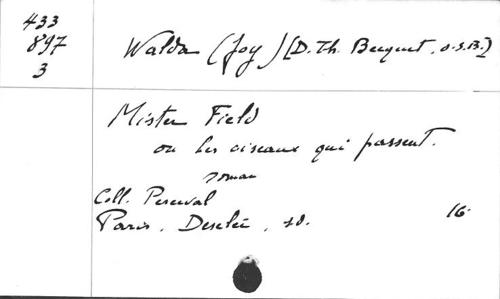 433
897
3
Walda (Joy) [D. Th. Becquet, O.S.B.]
Mister Field
ou les oiseaux qui passent.
roman
Coll. Perceval
Paris, Desclée, sd. 16.